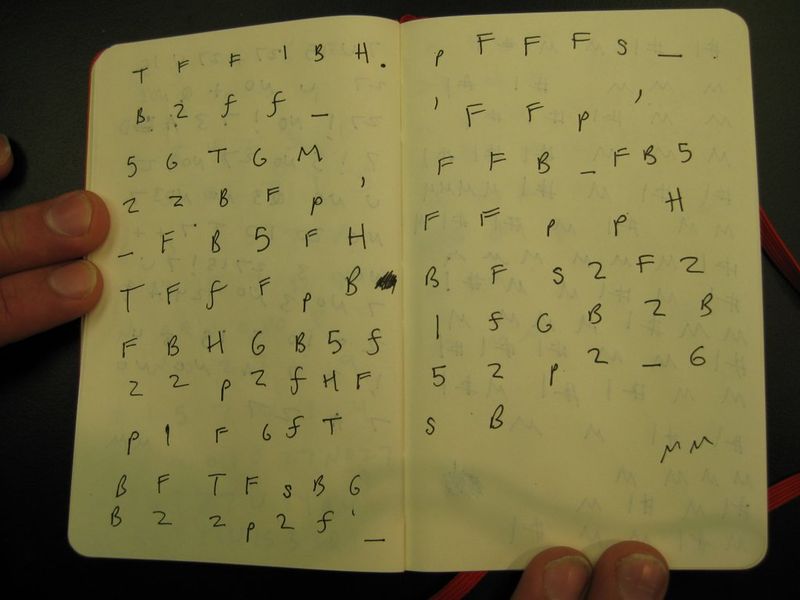 T F F 1 B H.
B 2 f f _
5 G T G M
2 2 B F p ,
_ F B 5 F H
T F f F p B
F B H G B 5 f
2 2 p 2 f H F
p 1 F G f T
B F T F s B G
B 2 2 p 2 f ' _
p F F F s _ .
' F F p '
F F B _ F B 5
F F p p H
B F s 2 F 2
1 f G B 2 B
5 2 p 2 _ 6
s B
M M